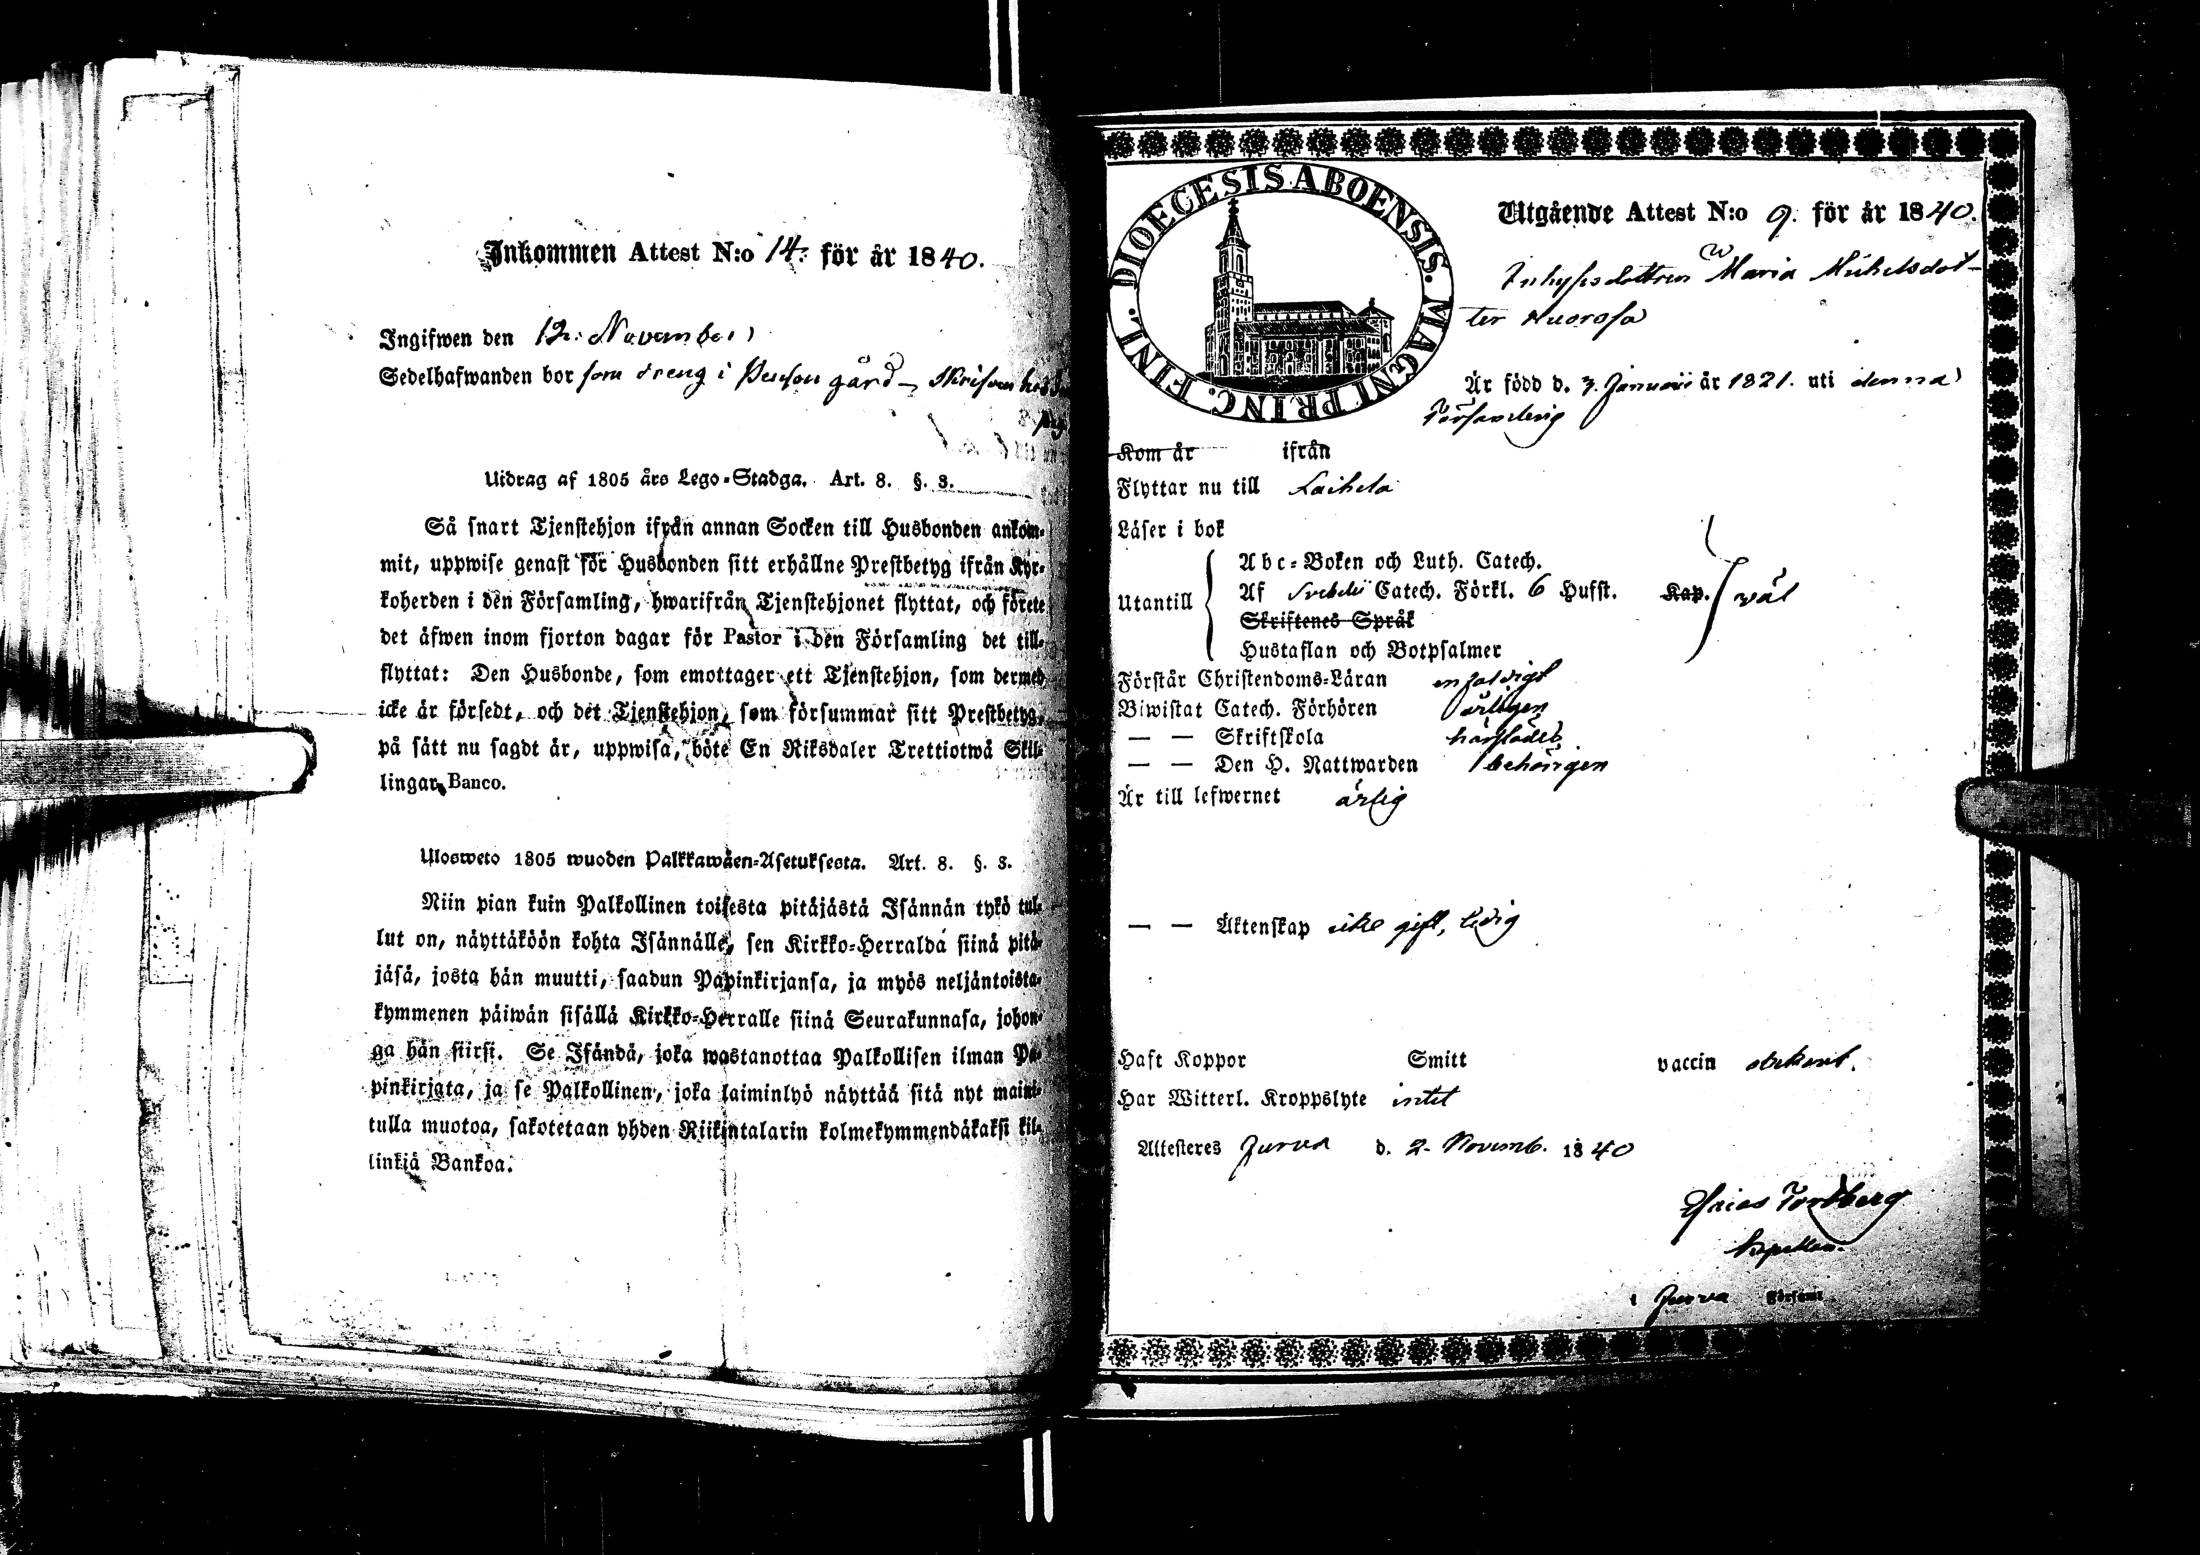 Inkommen Attest N:o 14. för år 1840.
Ingifwen den 12. November
Sedelhafwanden bor som dreng i gård – skrifven hos
Utdrag af 1805 års Lego-Stadga. Art. 8. §. 3.
Så snart Tjenstehjon ifrån annan Socken till Husbonden ankom-
mit, uppwise genast för Husbonden sitt erhållne Prestbetyg ifrån Kyr-
koherden i den Församling, hwarifrån Tjenstehjonet flyttat, och förete
det äfwen inom fjorton dagar för Pastor i den Församling det till-
flyttat: Den Husbonde, som emottager ett Tjenstehjon, som dermed
icke är försedt, och det Tjenstehjon, som försummar sitt Prestbetyg,
på sätt nu sagdt är, uppwisa, böte En Riksdaler Trettiotwå Skil-
lingar Banco.
Ulosweto 1805 wuoden Palkkawäen-Asetuksesta. Art. 8. §. 3.
Niin pian kuin Palkollinen toisesta pitäjästä Isännän tykö tul-
lut on, näyttäköön kohta Isännälle, sen Kirkko-Herralda siinä pitä-
jäsä, josta hän muutti, saadun Papinkirjansa, ja myös neljäntoista-
kymmenen päiwän sisällä Kirkko-Herralle siinä Seurakunnasa, johon-
ga hän siirsi. Se Isändä, joka wastanottaa Palkollisen ilman Pa-
pinkirjata, ja se Palkollinen, joka laiminlyö näyttää sitä nyt maini-
tulla muotoa, sakotetaan yhden Riikintalarin kolmekymmendäkaksi kil-
linkiä Bankoa.
DIOECESIS ABOENSIS. MAGNI PRINC. FINL.
Utgående Attest N:o 9. för år 1840.
Inhysesdottren Maria Michelsdot-
ter
Är född d. 3. Januari år 1821. uti denna
Församling
Kom år ifrån
Flyttar nu till Laihela
Läser i bok
Utantill
Abc-Boken och Luth. Catech.
Af Svebelii Catech. Förkl. 6 Hufst. Kap. väl
Skriftenes Språk
Hustaflan och Botpsalmer
Förstår Christendoms-Läran enfaldigt
Biwistat Catech. Förhören årligen
— — Skriftskola
— — Den H. Nattwarden behörigen
Är till lefwernet ärlig
— — Äktenskap icke gift, ledig
Haft Koppor Smitt vaccin
Har Witterl. Kroppslyte intet
Attesteres Jurva d. 2. Novemb. 1840
Esaias Tordberg
kapellan.
i Jurva Församl.